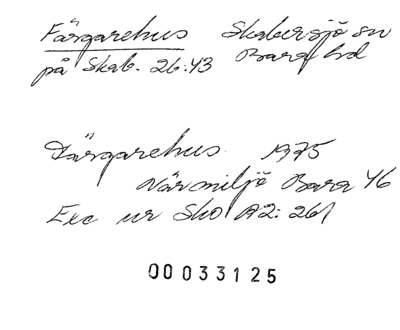 Färgarehus Skabersjö sn
på Skab. 26:43 Bara hd
Färgarehus 1975
Närmiljö Bara 46
Exc ur Sko A2: 261
00033125